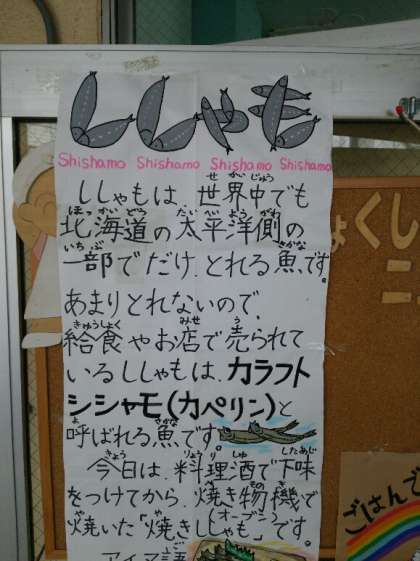 ししゃも
Shishamo Shishamo Shishamo Shishamo
ししゃもは、世界中でも
北海道の太平洋側の
一部でだけ、とれる魚です。
あまりとれないので、
給食やお店で売られて
いるししゃもは、カラフト
シシャモ(カペリン)と
呼ばれる魚です。
今日は、料理酒で下味
をつけてから、焼き物機で
焼いた「焼きししゃも」です。
アイヌ語
ょくし
こ
ごはんで